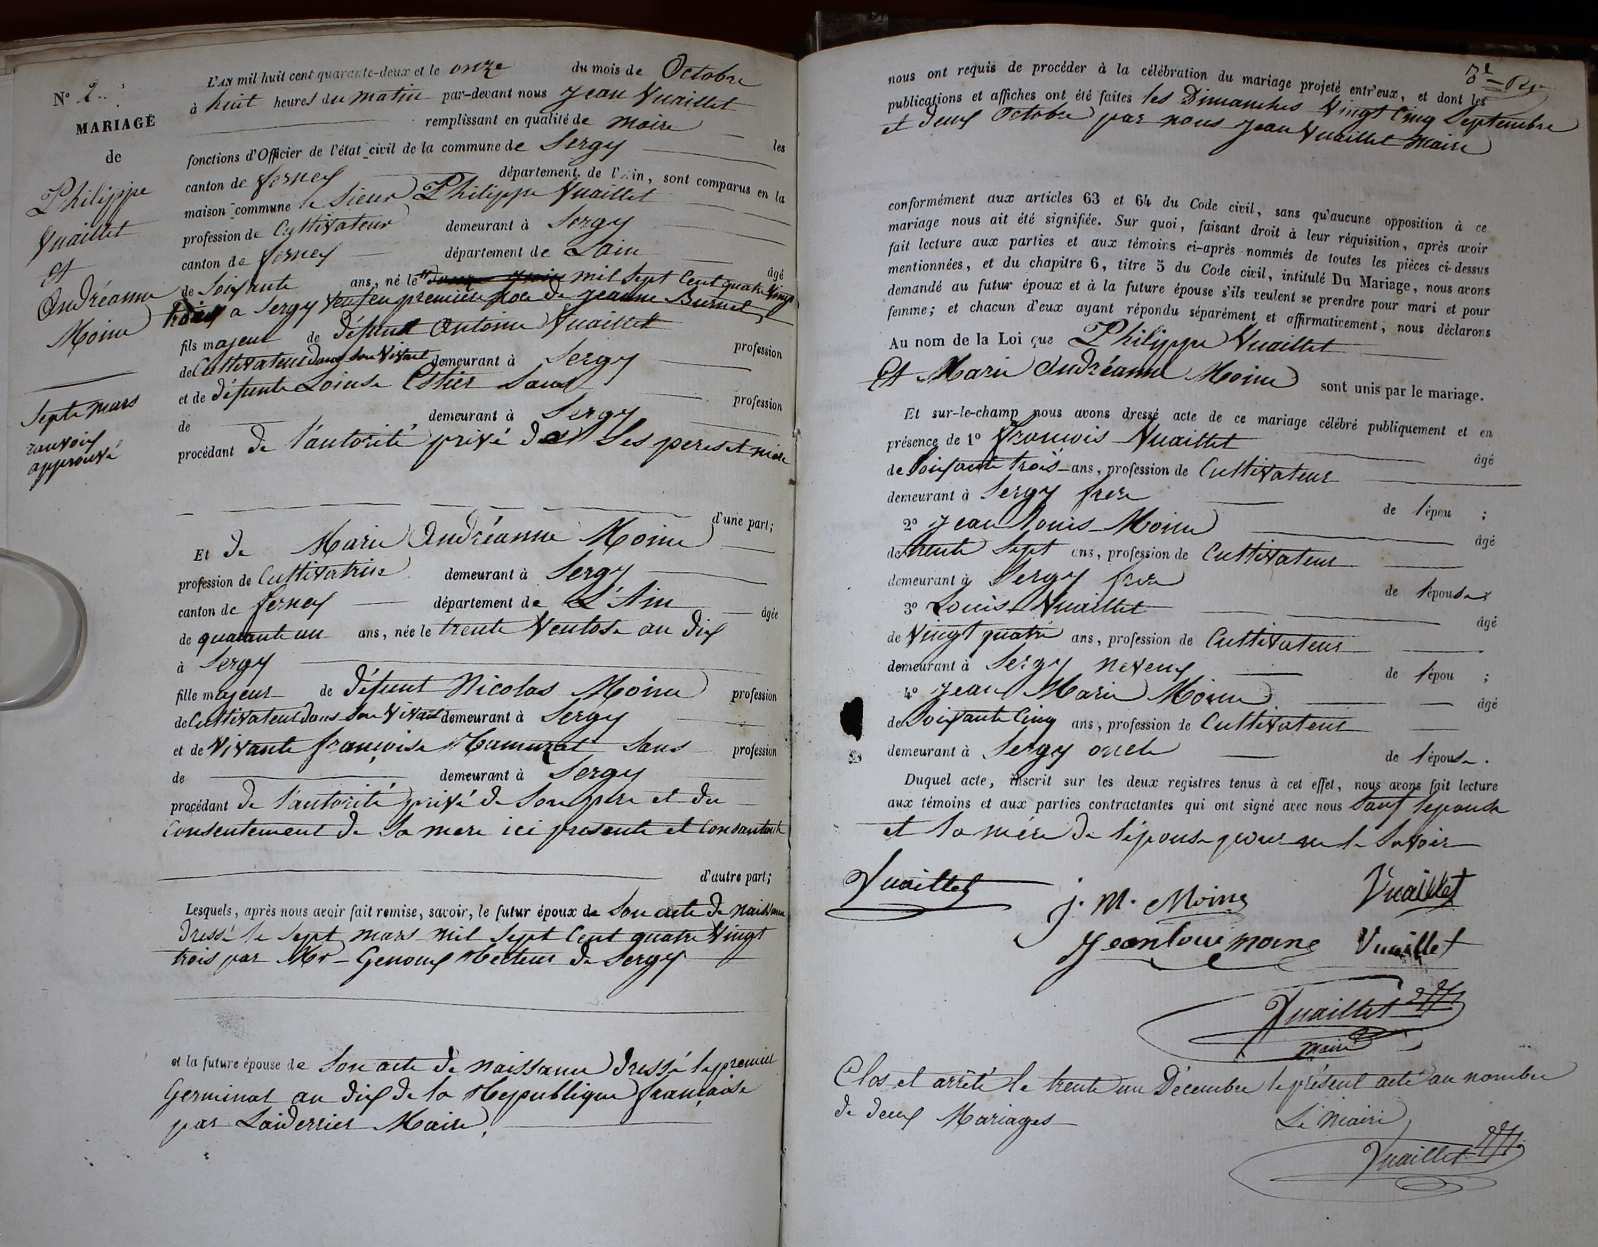 N° 2
MARIAGE
de
Philippe
Vuaillet
et
Andréanne
Moine
Septe mars
renvois
approuvé
L'AN mil huit cent quarante-deux et le onze du mois de Octobre
à huit heures du matin par-devant nous Jean Vuaillet
remplissant en qualité de maire les
fonctions d'Officier de l'état civil de la commune de Sergy
canton de ferney département de l'Ain, sont comparus en la
maison commune le Sieur Philippe Vuaillet
profession de Cultivateur demeurant à Sergy
canton de ferney département de Lain âgé
de Soixante ans, né le mil Sept Cent quatre Vingt
trois a Sergy Veuf en premiere noce de jeanne Burnet
fils majeur de défunt Antoine Vuaillet profession
de Cultivateur dans Son Vivant demeurant à Sergy
et de défunte Loiuse Estier Sans profession
de demeurant à Sergy
procédant de l'autorité privé de Ses peres et mere
d'une part;
Et de Marie Andréanne Moine
profession de Cultivatrice demeurant à Sergy
canton de ferney département de L'Ain âgée
de quarante un ans, née le trente Ventose an dix
à Sergy
fille majeur de défunt Nicolas Moine profession
de Cultivateur dans Son Vivant demeurant à Sergy
et de Vivante françoise Sans profession
de demeurant à Sergy
procédant de l'autorité privé de Son pere et du
Consentement de Sa mere ici presente et Consantante
d'autre part;
Lesquels, après nous avoir fait remise, savoir, le futur époux de Son acte de naissance
Dressé le Sept mars mil Sept Cent quatre Vingt
trois par Mr Genoux Recteur de Sergy
et la future épouse de Son acte de naissance dressé le premier
Germinal an dix de la Republique française
par Laiderrier Maire.
nous ont requis de procéder à la célébration du mariage projeté entr'eux, et dont les
publications et affiches ont été faites les Dimanches Vingt Cinq Septembre
et deux Octobre par nous Jean Vuaillet Maire
conformément aux articles 63 et 64 du Code civil, sans qu'aucune opposition à ce
mariage nous ait été signifiée. Sur quoi, faisant droit à leur réquisition, après avoir
fait lecture aux parties et aux témoins ci-après nommés de toutes les pièces ci-dessus
mentionnées, et du chapitre 6, titre 5 du Code civil, intitulé Du Mariage, nous avons
demandé au futur époux et à la future épouse s'ils veulent se prendre pour mari et pour
femme; et chacun d'eux ayant répondu séparément et affirmativement, nous déclarons
Au nom de la Loi que Philippe Vuaillet
Et Marie Andréanne Moine sont unis par le mariage.
Et sur-le-champ nous avons dressé acte de ce mariage célébré publiquement et en
présence de 1° françois Vuaillet âgé
de Soixante trois ans, profession de Cultivateur
demeurant à Sergy frere de l'épou ;
2° Jean Louis Moine âgé
de trente Sept ans, profession de Cultivateur
demeurant à Sergy frere de l'épouse
3° Louis Vuaillet âgé
de Vingt quatre ans, profession de Cultivateur
demeurant à Sergy neveux de l'épou ;
4° Jean Marie Moine âgé
de Soixante Cinq ans, profession de Cultivateur
demeurant à Sergy oncle de l'épouse.
Duquel acte, inscrit sur les deux registres tenus à cet effet, nous avons fait lecture
aux témoins et aux parties contractantes qui ont signé avec nous Sauf lepouse
et la mére de l'épouse pour ne le Savoir
Vuaillet
J. M. Moine
Vuaillet
Jeanloui moine
Vuaillet
Vuaillet
maire
Clos et arrêté le trente un Décembre le présent acte au nombre
de deux Mariages
Le Maire
Vuaillet